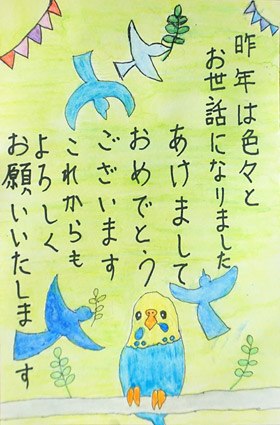 昨年は色々と
お世話になりました
あけまして
おめでとう
ございます
これからも
よろしく
お願いいたします